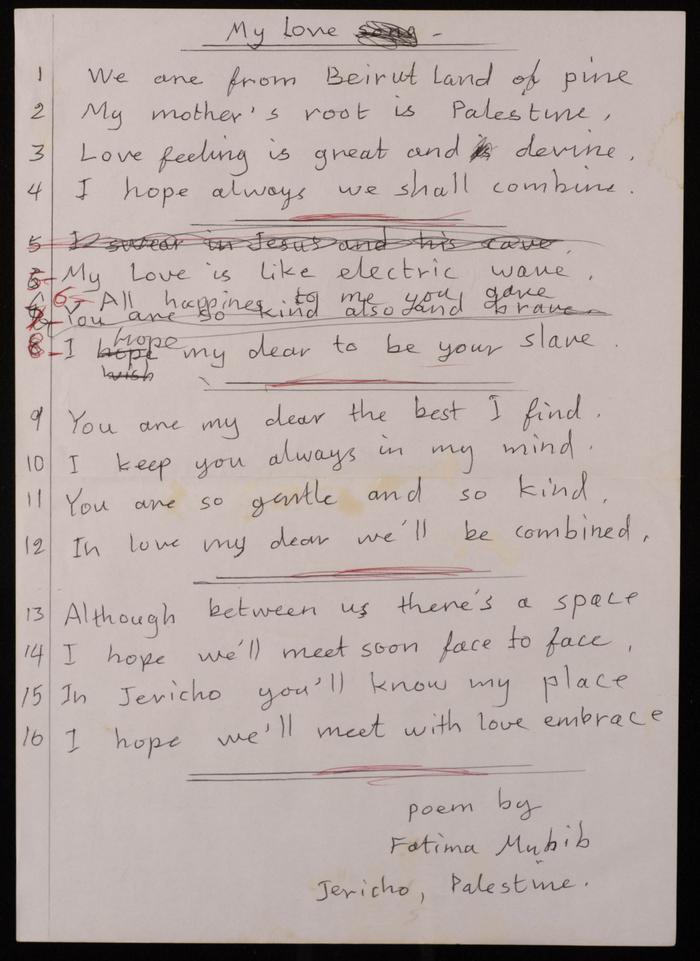 My Love song -
1 We are from Beirut Land of pine
2 My mother's root is Palestine,
3 Love feeling is great and is devine,
4 I hope always we shall combine.
5 I swear in Jesus and his cave,
5- My Love is like electric wave,
6- All happines to me you gave
7- You are so kind also and brave
8- I hope my dear to be your slave.
hope
wish
9 You are my dear the best I find.
10 I keep you always in my mind.
11 You are so gentle and so kind,
12 In love my dear we'll be combined,
13 Although between us there's a space
14 I hope we'll meet soon face to face,
15 In Jericho you'll know my place
16 I hope we'll meet with love embrace
poem by
Fatima Muhib
Jericho, Palestine.